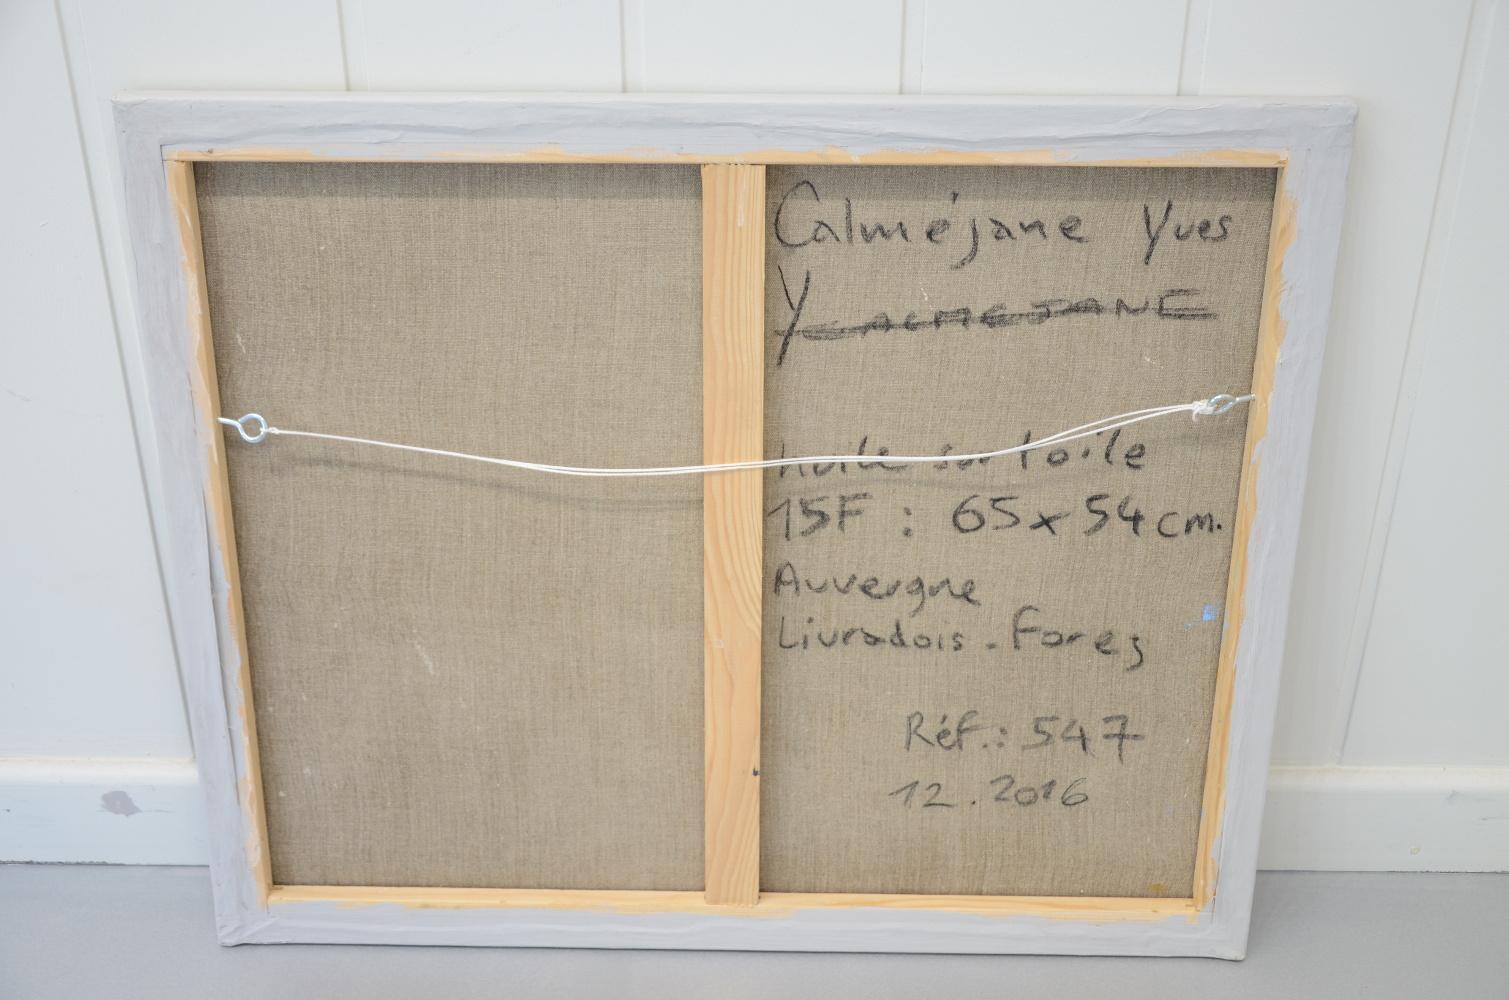 Calméjane Yves
Y CALMEJANE
Huile sur toile
15F : 65 x 54 cm.
Auvergne
Livradois - Forez
Réf.: 547
12.2016